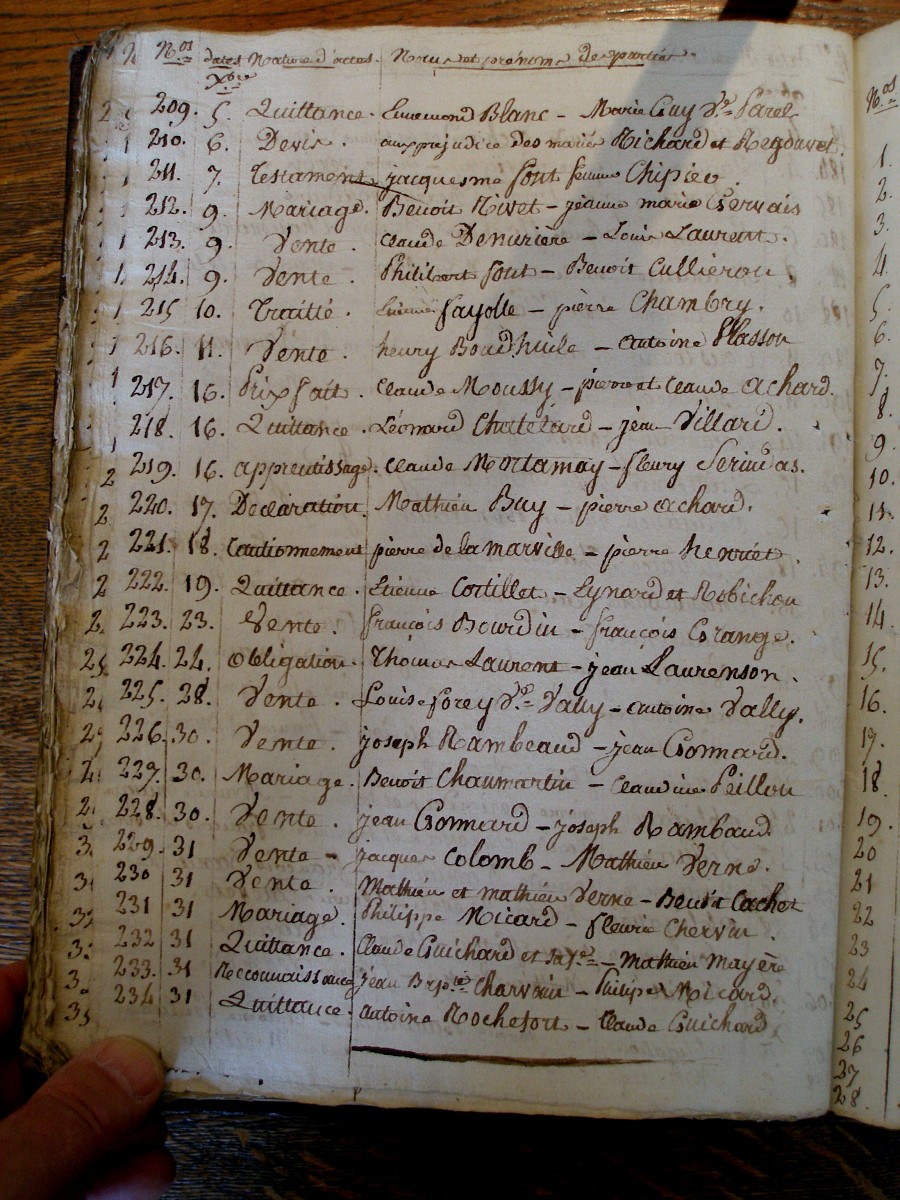 N.os dates Nature d'actes. Noms et prénoms des parties.
Xbre
209. 5. Quittance. Ennemond Blanc - Marie Guy Ve Farel
210. 6. Devis. aux prejudice des mariés Richard et Regouvet.
211. 7. Testament jacquesme font femme Chipier.
212. 9. Mariage. Benoit Rivet - jeanne marie Gervais
213. 9. Vente. Claude Denuziere - Louis Laurent.
214. 9. Vente. Philibert font - Benoit Cullieron.
215 10. Traitté. fayolle - pierre Chambry.
216. 11. Vente. henry Boudhuile - antoine Plasson
217. 16. Prix fait. Claude Moussy - pierre et Claude achard.
218. 16. Quittance. Léonard Chatelard - jean Villard.
219. 16. apprentissage. Claude Montamay - fleury Serindas.
220. 17. Declaration. Mathieu Buy - pierre achard.
221. 18. Cautionnement pierre de la marville - pierre henriet.
222. 19. Quittance. Etienne Cortillet - Eynard et Robichon
223. 23. Vente. françois Bourdin - françois Grange.
224. 24. obligation. Thomas Laurent - jean Laurenson.
225. 28. Vente. Louise forey Ve Vally - antoine Vally.
226. 30. Vente. joseph Rambeaud - jean Gonnard.
227. 30. Mariage. Benoit Chaumartin - Claudine Peillon
228. 30. Vente. jean Gonnard - joseph Rambaud.
229. 31 Vente - jacques Colomb - Mathieu Verne.
230 31 Vente. Mathieu et mathieu Verne - Benoit Cachet
231 31 Mariage. Philippe Micard - fleurie Chervin.
232 31 Quittance. Claude Guichard et - Mathieu Mayère
233. 31 Reconnaissance jean Bapte Charvain - Philipe Micard.
234 31 Quittance. antoine Rochefort - Claude Guichard
N.os
1.
2.
3.
4.
5.
6.
7.
8.
9.
10.
11.
12.
13.
14.
15.
16.
17.
18.
19.
20
21
22
23
24
25
26
27
28.